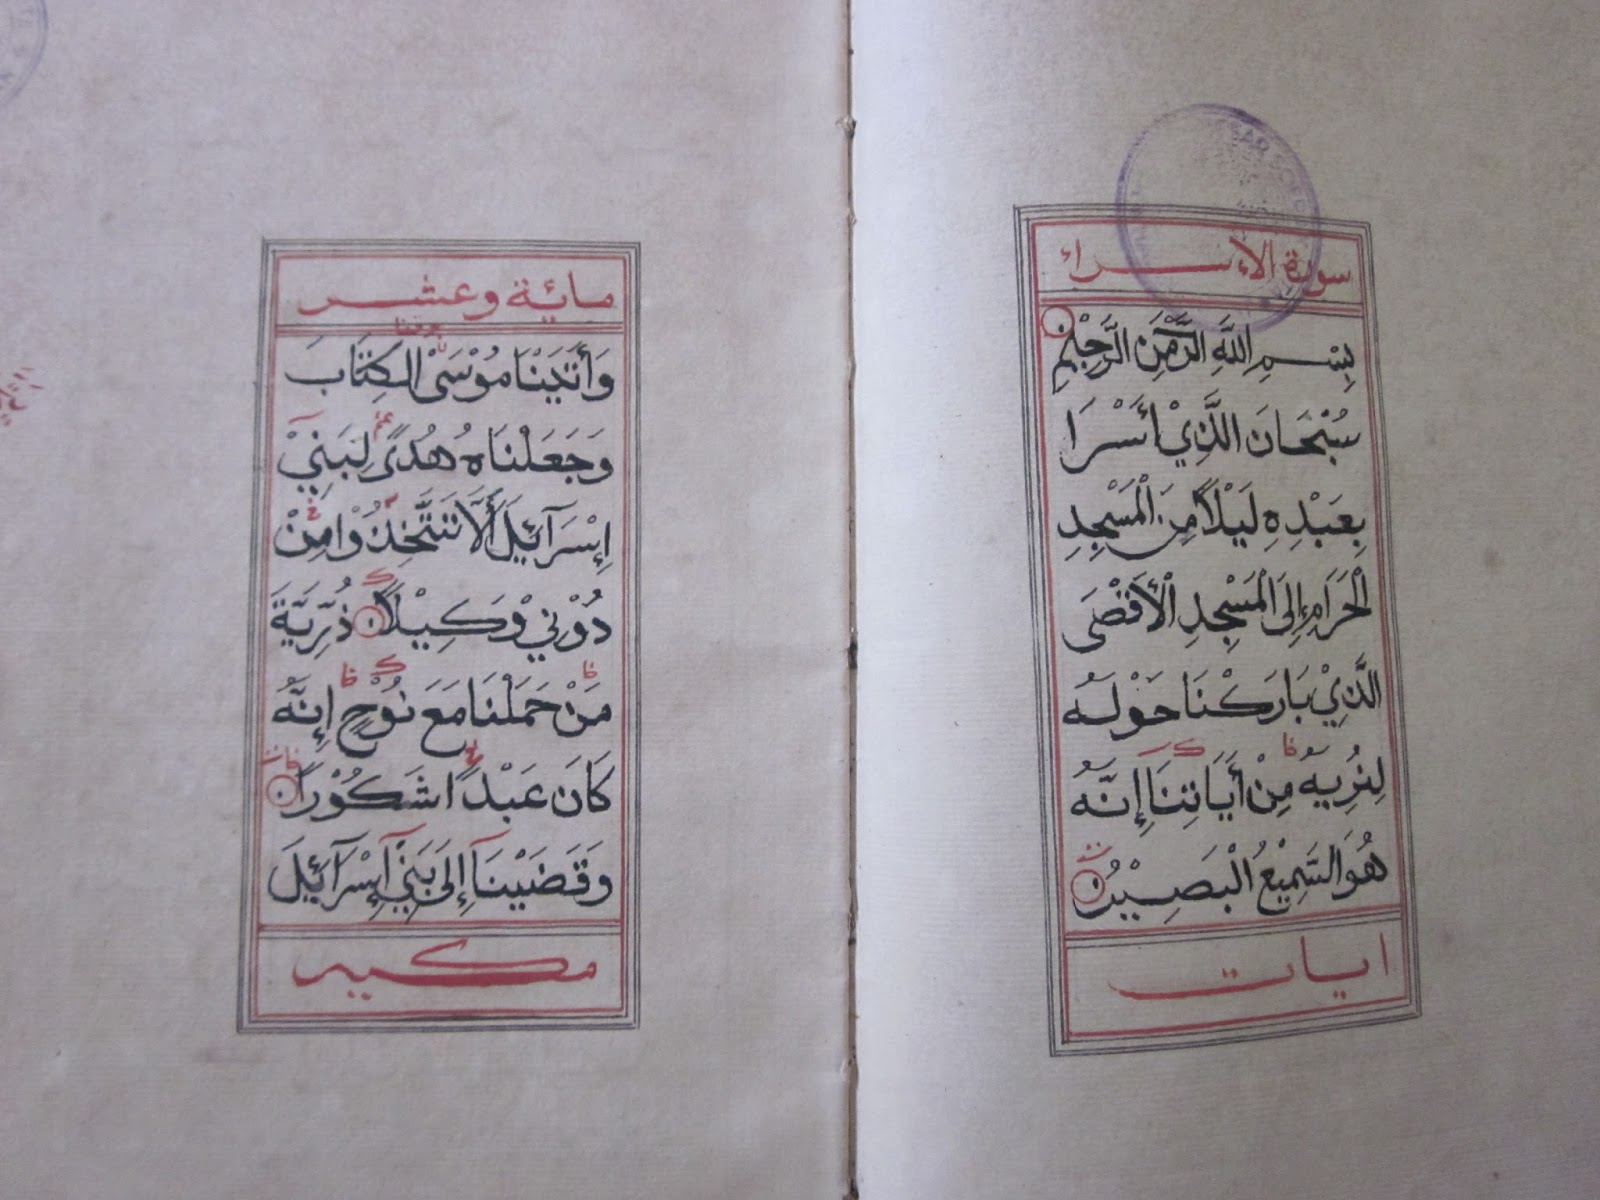 سورة الإسراء
بِسْمِ اللَّهِ الرَّحْمَنِ الرَّحِيْمِ
سُبْحَانَ الَّذِيْ أَسْرَا
بِعَبْدِهِ لَيْلًا مِنَ الْمَسْجِدِ
الْحَرَامِ إِلَى الْمَسْجِدِ الْأَقْصَى
الَّذِيْ بَارَكْنَا حَوْلَهُ
لِنُرِيهُ مِنْ أَيَاتِنَا إِنَّهُ
هُوَ السَّمِيْعُ الْبَصِيْرُ
ايات
ماية وعشر
وَأَتَيْنَا مُوْسَى الْكِتَابَ
وَجَعَلْنَاهُ هُدًى لِبَنِيْ
إِسْرَآئِيْلَ أَلَّا تَتَّخِذُوْا مِنْ
دُوْنِيْ وَكِيْلًا ذُرِّيَّةَ
مَنْ حَمَلْنَا مَعَ نُوْحٍ إِنَّهُ
كَانَ عَبْدًا شَكُوْرًا
وَقَضَيْنَآ إِلَى بَنِيْ إِسْرَآئِيْلَ